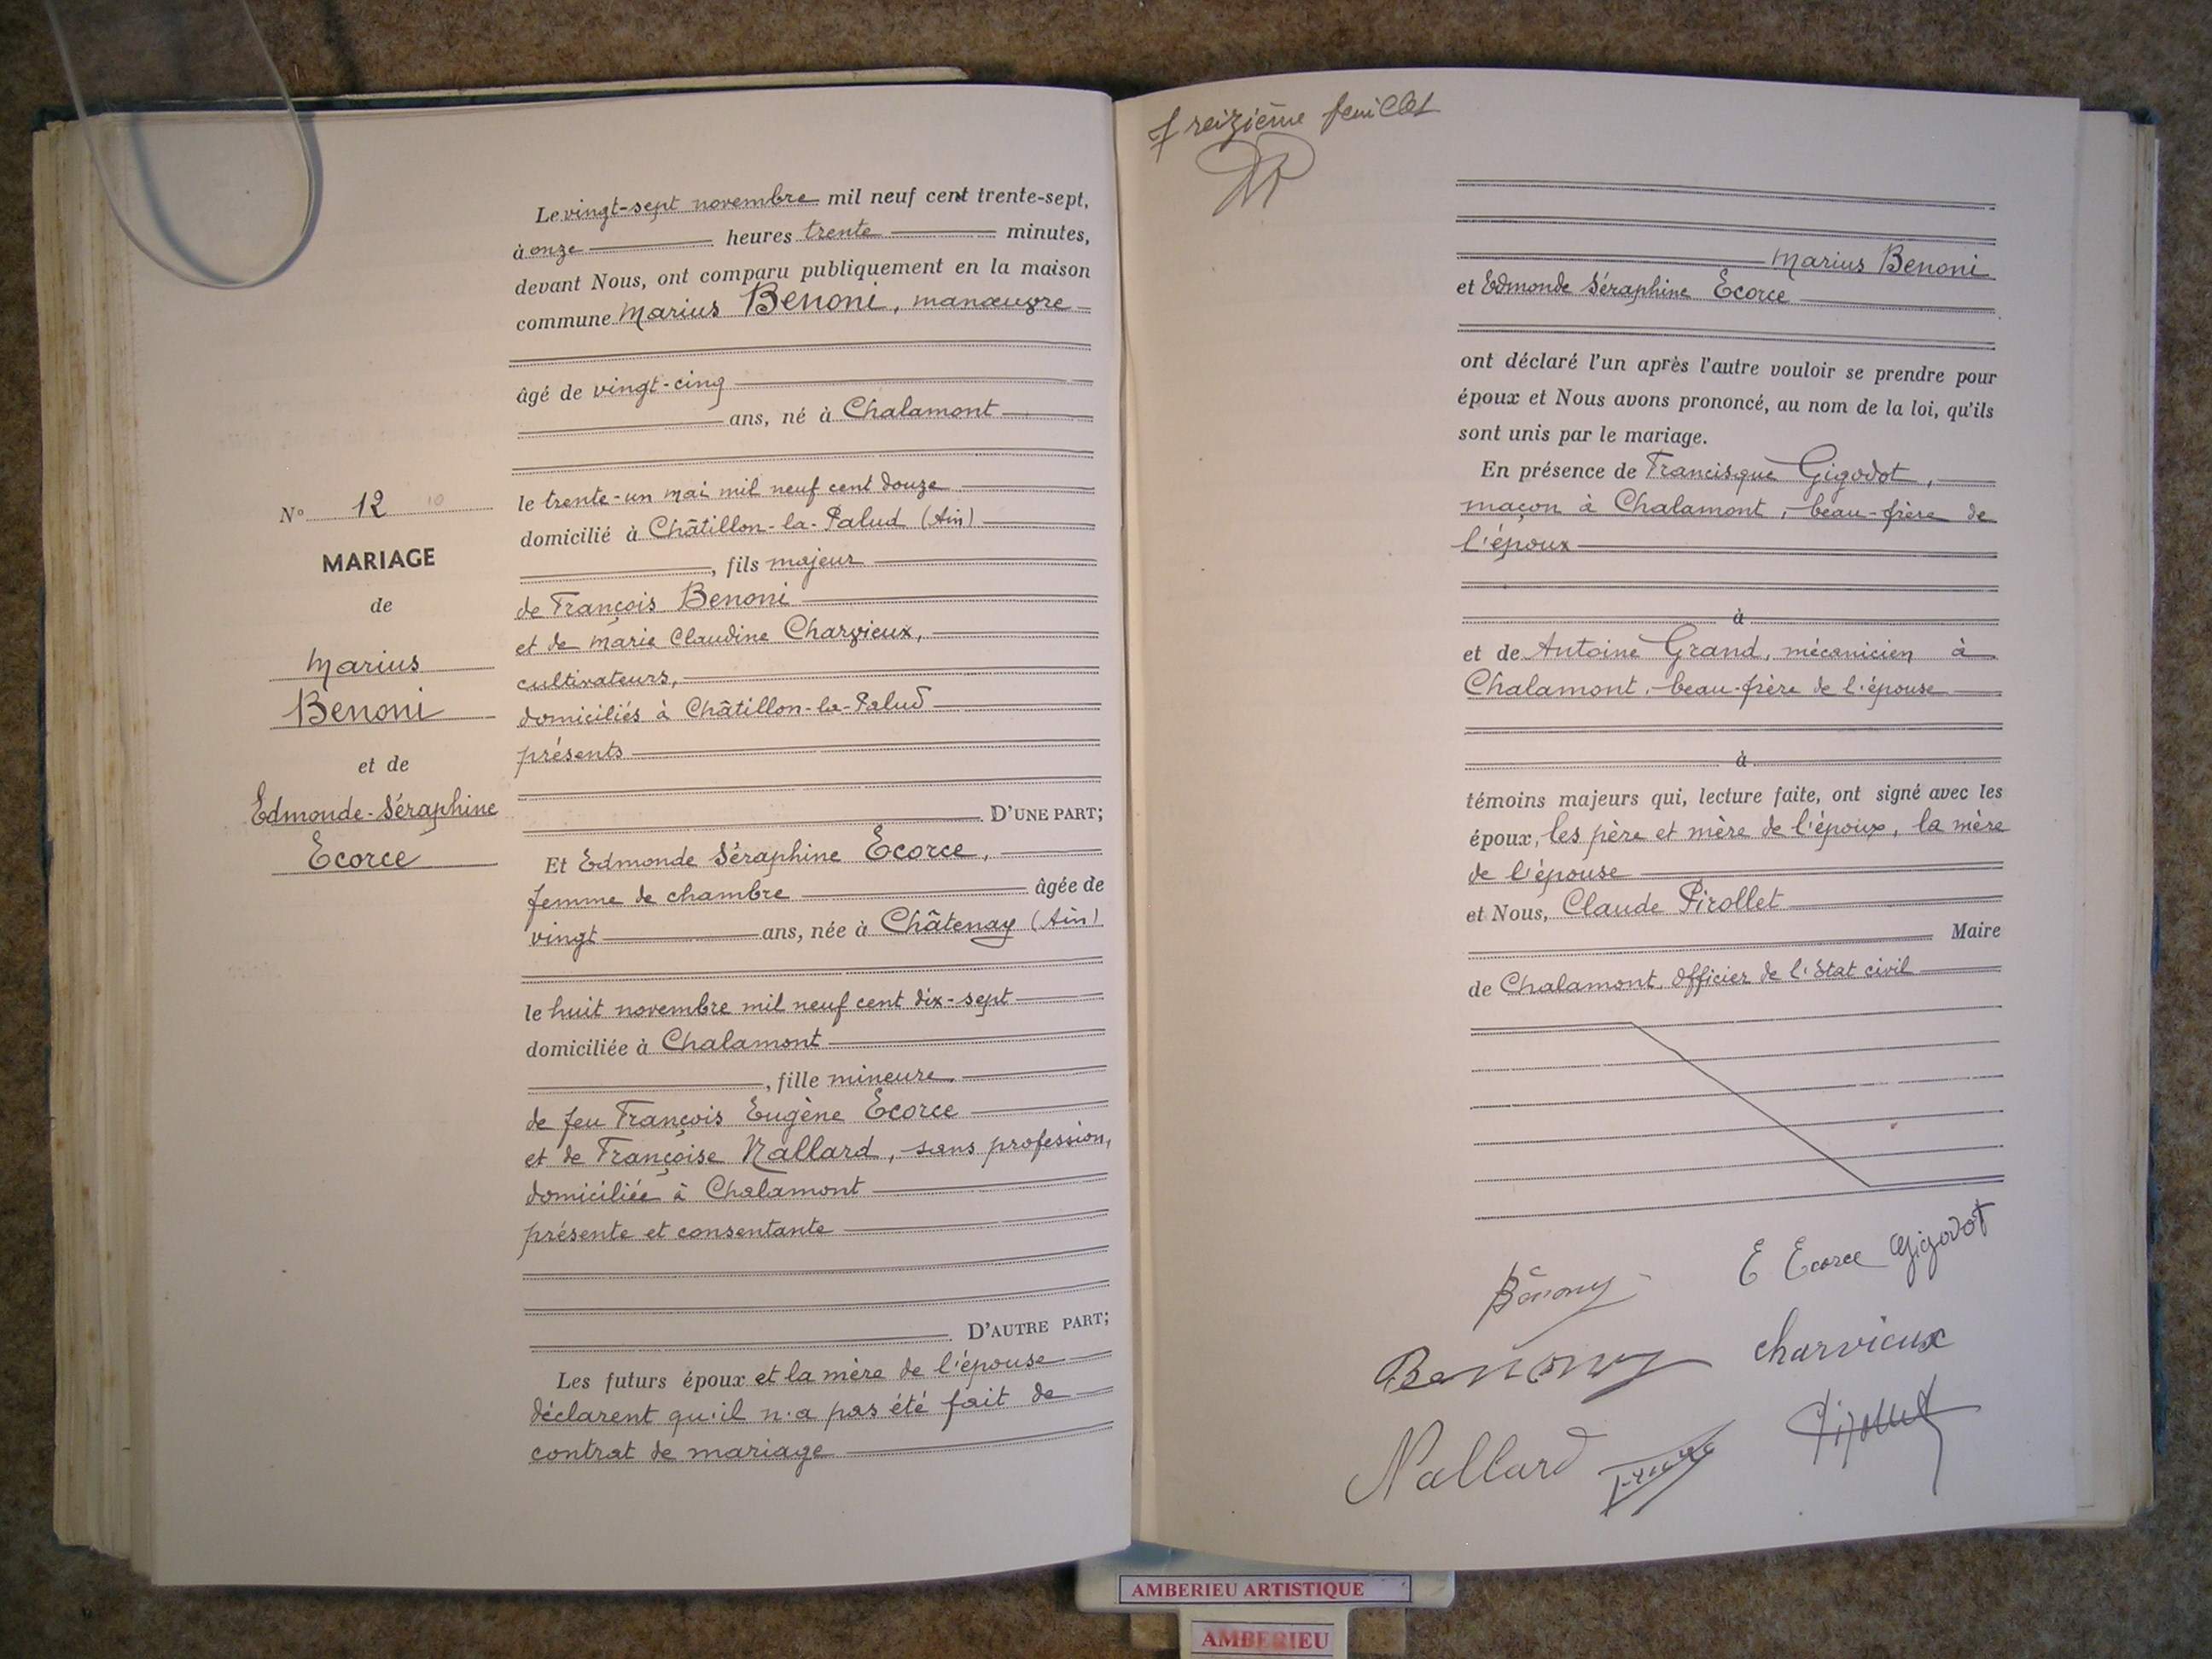 N° 12
MARIAGE
de
Marius
Benoni
et de
Edmonde-Séraphine
Ecorce
Le vingt-sept novembre mil neuf cent trente-sept,
à onze heures trente minutes,
devant Nous, ont comparu publiquement en la maison
commune Marius Benoni, manœuvre
âgé de vingt-cinq
ans, né à Chalamont
le trente-un mai mil neuf cent douze
domicilié à Châtillon-la-Palud (Ain)
, fils majeur
de François Benoni
et de Marie Claudine Charvieux,
cultivateurs,
domiciliés à Châtillon-la-Palud
présents
D'UNE PART;
Et Edmonde Séraphine Ecorce,
femme de chambre âgée de
vingt ans, née à Châtenay (Ain)
le huit novembre mil neuf cent dix-sept
domiciliée à Chalamont
, fille mineure
de feu François Eugène Ecorce
et de Françoise Nallard, sans profession,
domiciliée à Chalamont
présente et consentante
D'AUTRE PART;
Les futurs époux et la mère de l'épouse
déclarent qu'il n'a pas été fait de
contrat de mariage
treizième feuillet
Marius Benoni
et Edmonde Séraphine Ecorce
ont déclaré l'un après l'autre vouloir se prendre pour
époux et Nous avons prononcé, au nom de la loi, qu'ils
sont unis par le mariage.
En présence de Francisque Gigodot,
maçon à Chalamont, beau-frère de
l'époux
à
et de Antoine Grand, mécanicien à
Chalamont, beau-frère de l'épouse
à
témoins majeurs qui, lecture faite, ont signé avec les
époux, les père et mère de l'époux, la mère
de l'épouse
et Nous, Claude Pirollet
Maire
de Chalamont, Officier de l'Etat civil
Bénony E Ecorce Gigodot
Benony charvieux
Nallard Pirollet
AMBERIEU ARTISTIQUE
AMBERIEU